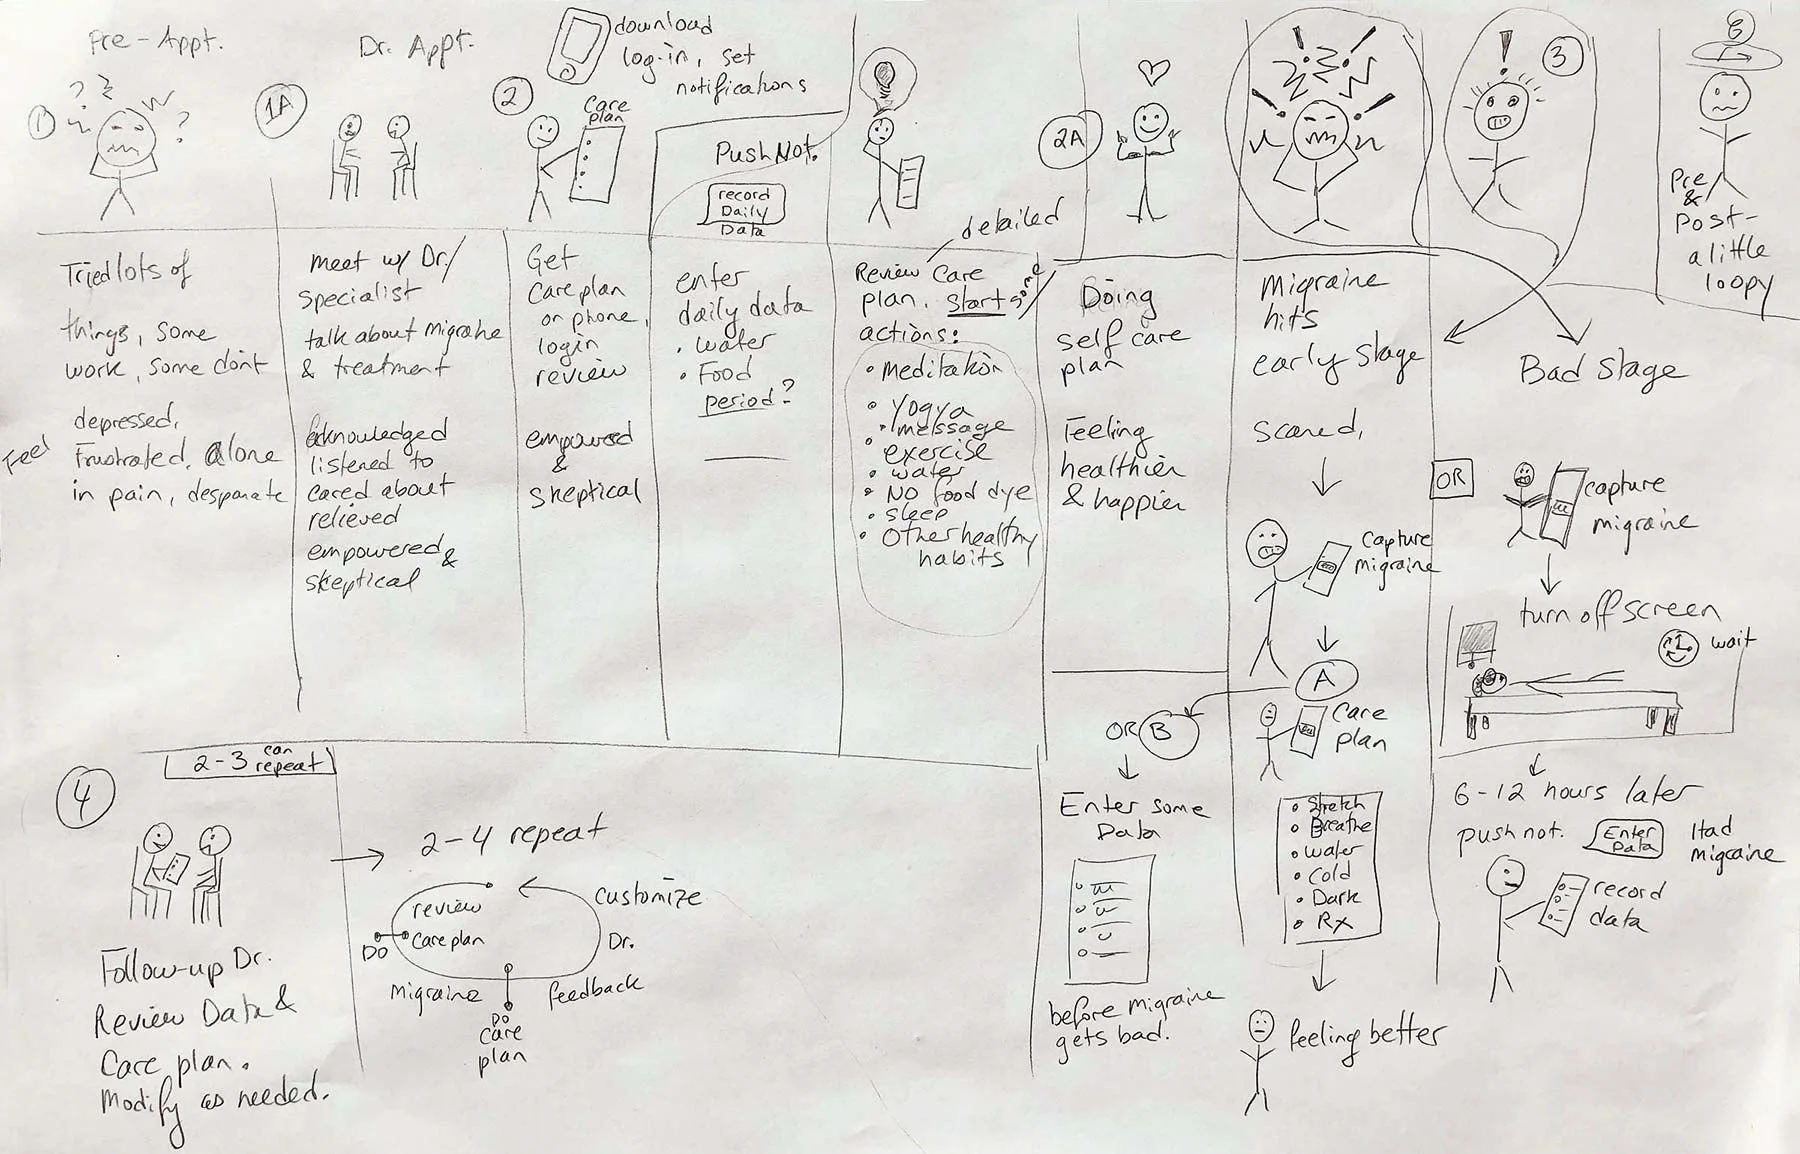 Pre-Appt.
1A
Dr. Appt.
2
Care
plan
download
log-in, set
notifications
Push Not.
record
Daily
Data
2A
3
Pre
&
Post-
a little
loopy
Tried lots of
things, some
work, some don't
Feel
depressed,
Frustrated, alone
in pain, desparate
meet w/ Dr./
specialist
talk about migraine
& treatment
acknowledged
listened to
cared about
relieved
empowered &
skeptical
Get
care plan
on phone,
login
review
empowered
&
skeptical
enter
daily data
• water
• Food
period?
detailed
Review Care
plan. Start some
actions:
• meditation
• Yogya
• message
• exercise
• water
• No food dye
• sleep
• Other healthy
habits
Doing
self care
plan
Feeling
healthier
& happier
Migraine
hits
early stage
scared,
capture
migraine
A
OR B
Care
plan
Enter some
Data
before migraine
gets bad.
• Stretch
• Breathe
• water
• Cold
• Dark
• Rx
feeling better
Bad stage
OR
capture
migraine
turn off screen
wait
6-12 hours later
push not.
Enter
Data
Had
migraine
record
data
4
2-3 can
repeat
Follow-up Dr.
Review Data &
Care plan.
Modify as needed.
2-4 repeat
review
care plan
Do
Migraine
Do
care
plan
feedback
Dr.
customize